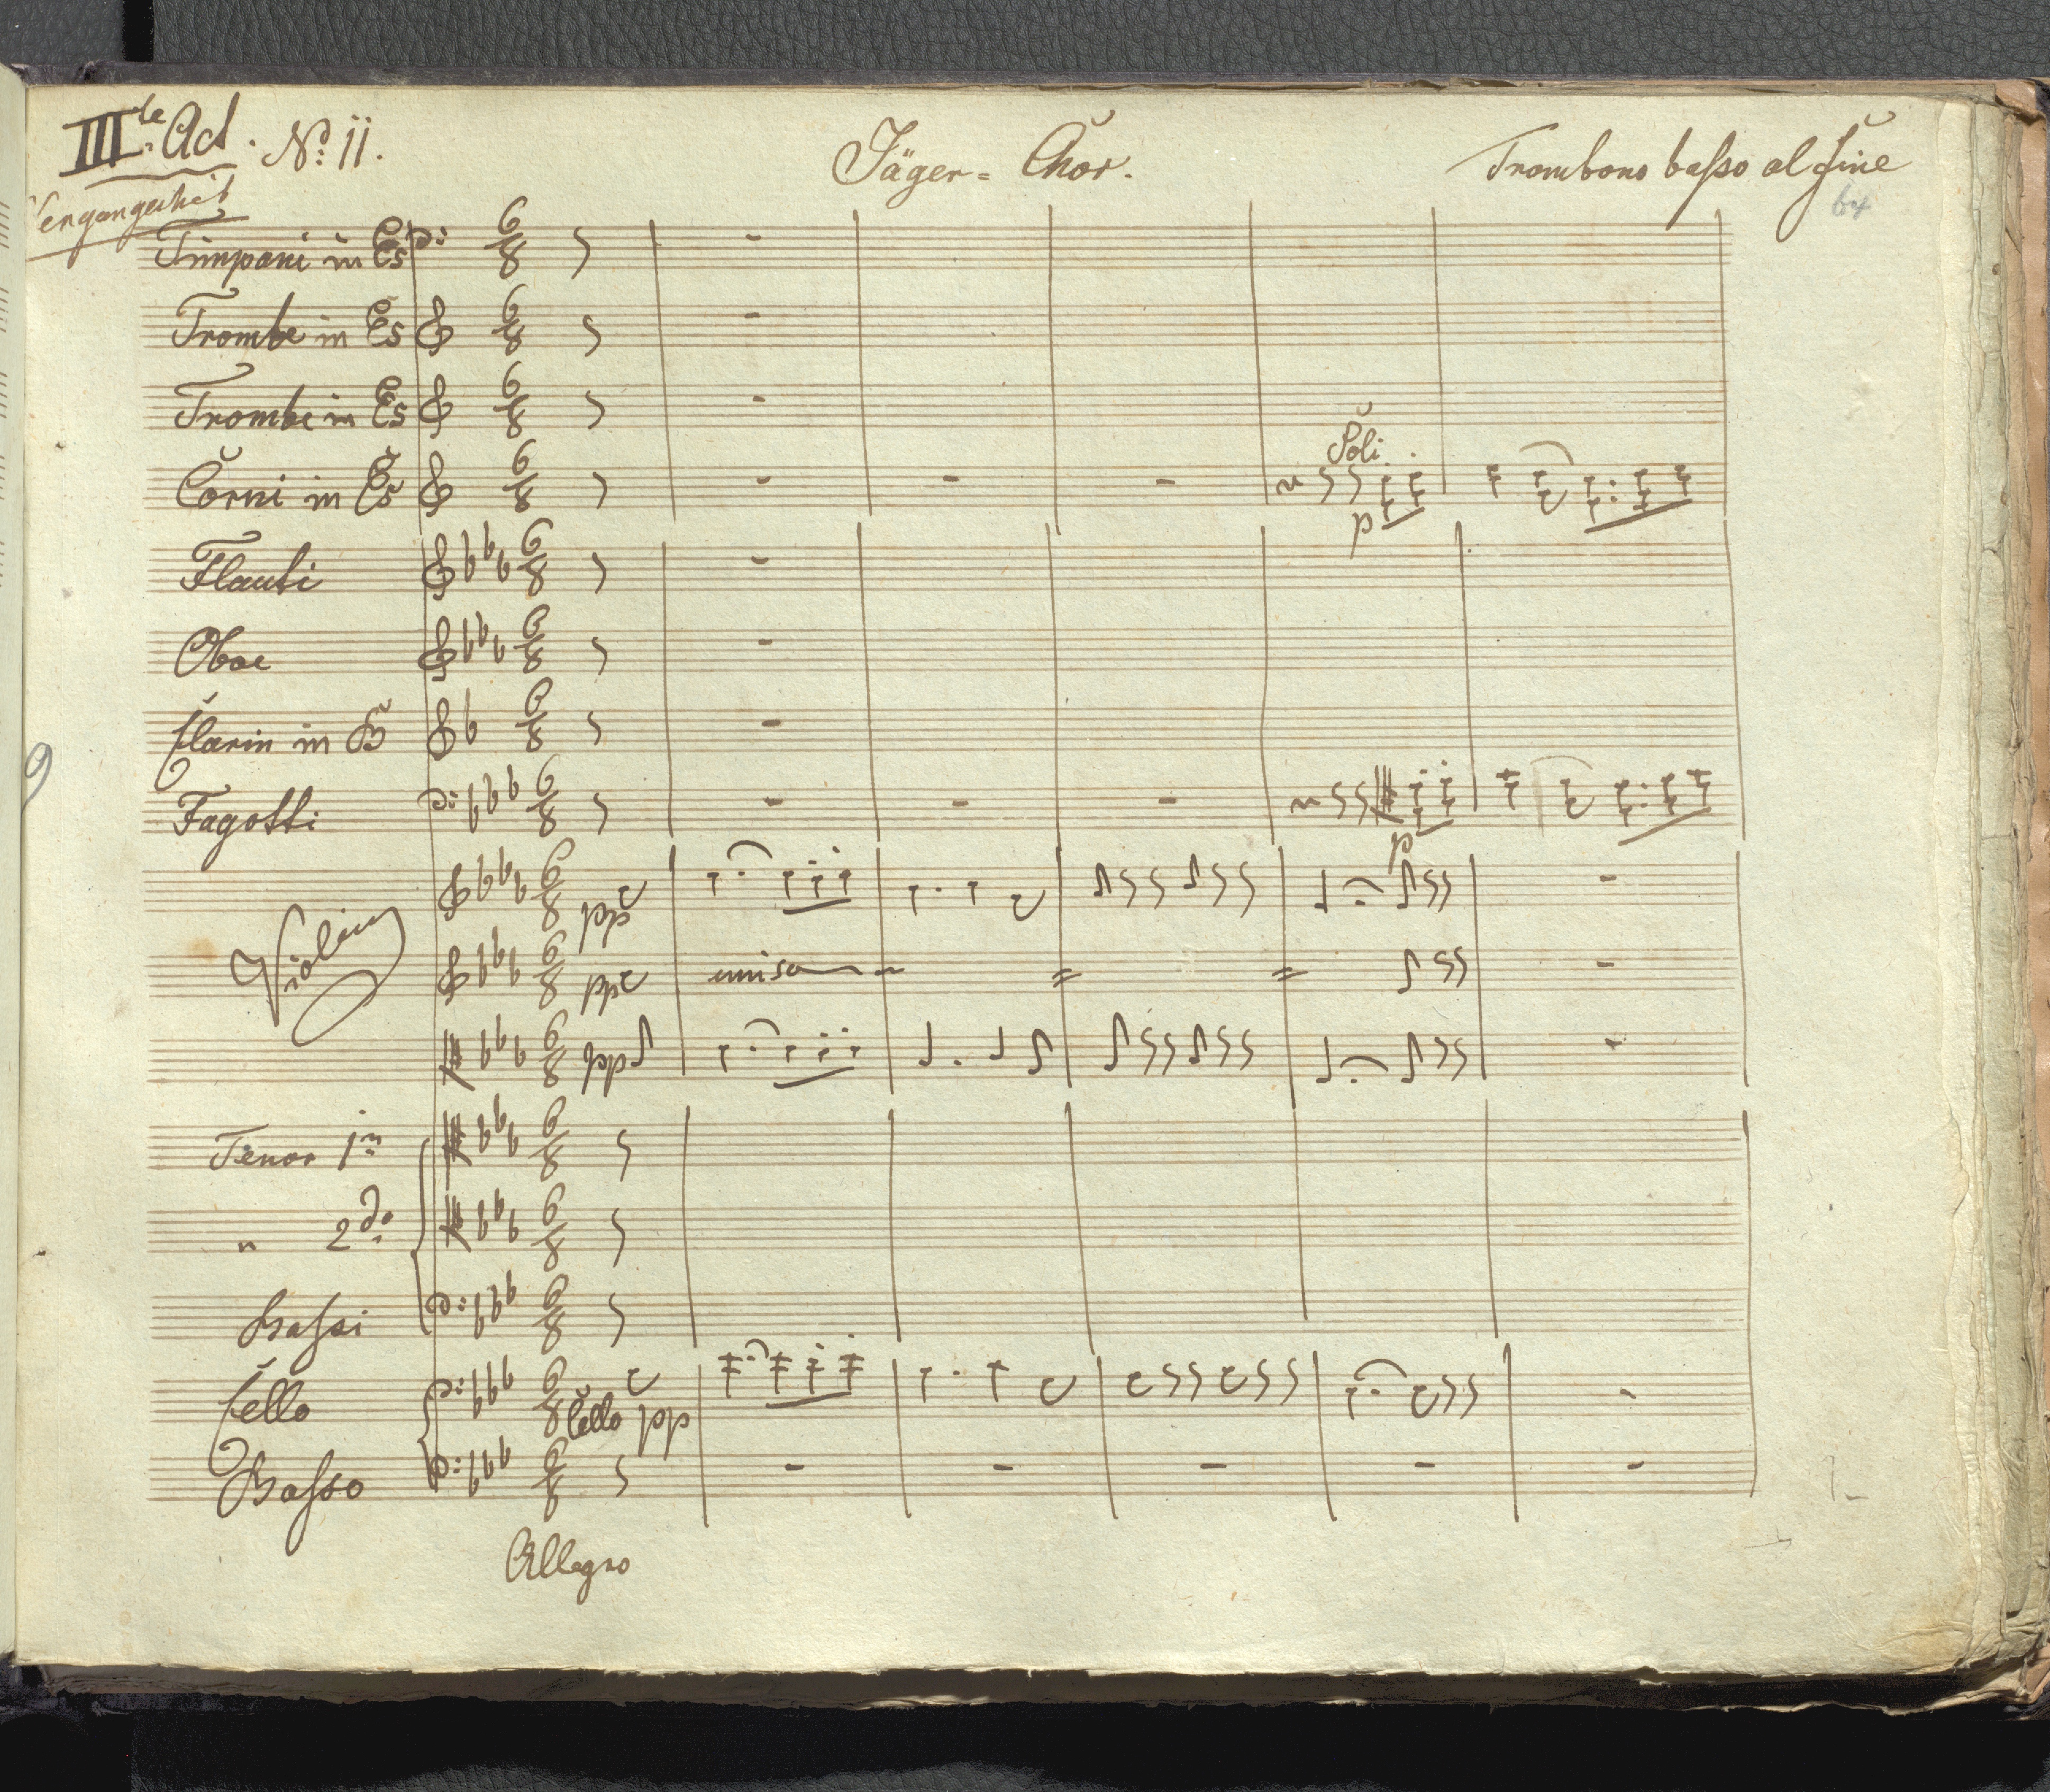 IIIte Act. No: 11.
Jäger= Chor.
Trombono basso al Fine
64
Vergangenheit
Timpani in Es
Trombe in Es
Trombe in Es
Corni in Es
Soli
p
Flauti
Oboe
Clarin in B
9
Fagotti
p
Violini
pp
pp
uniso
pp
Tenor 1mo
" 2do
Bassi
Cello
Cello pp
Basso
Allegro